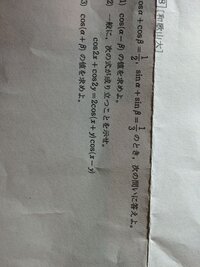 [和歌山大]
cosα+cosβ=1/2, sinα+sinβ=1/3 のとき，次の問いに答えよ。
(1) cos(α−β) の値を求めよ。
(2) 一般に，次の式が成り立つことを示せ。
cos2x+cos2y=2cos(x+y)cos(x−y)
(3) cos(α+β) の値を求めよ。